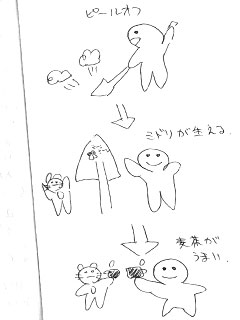 ピールオフ
ミドリが生える。
麦茶が
うまい。